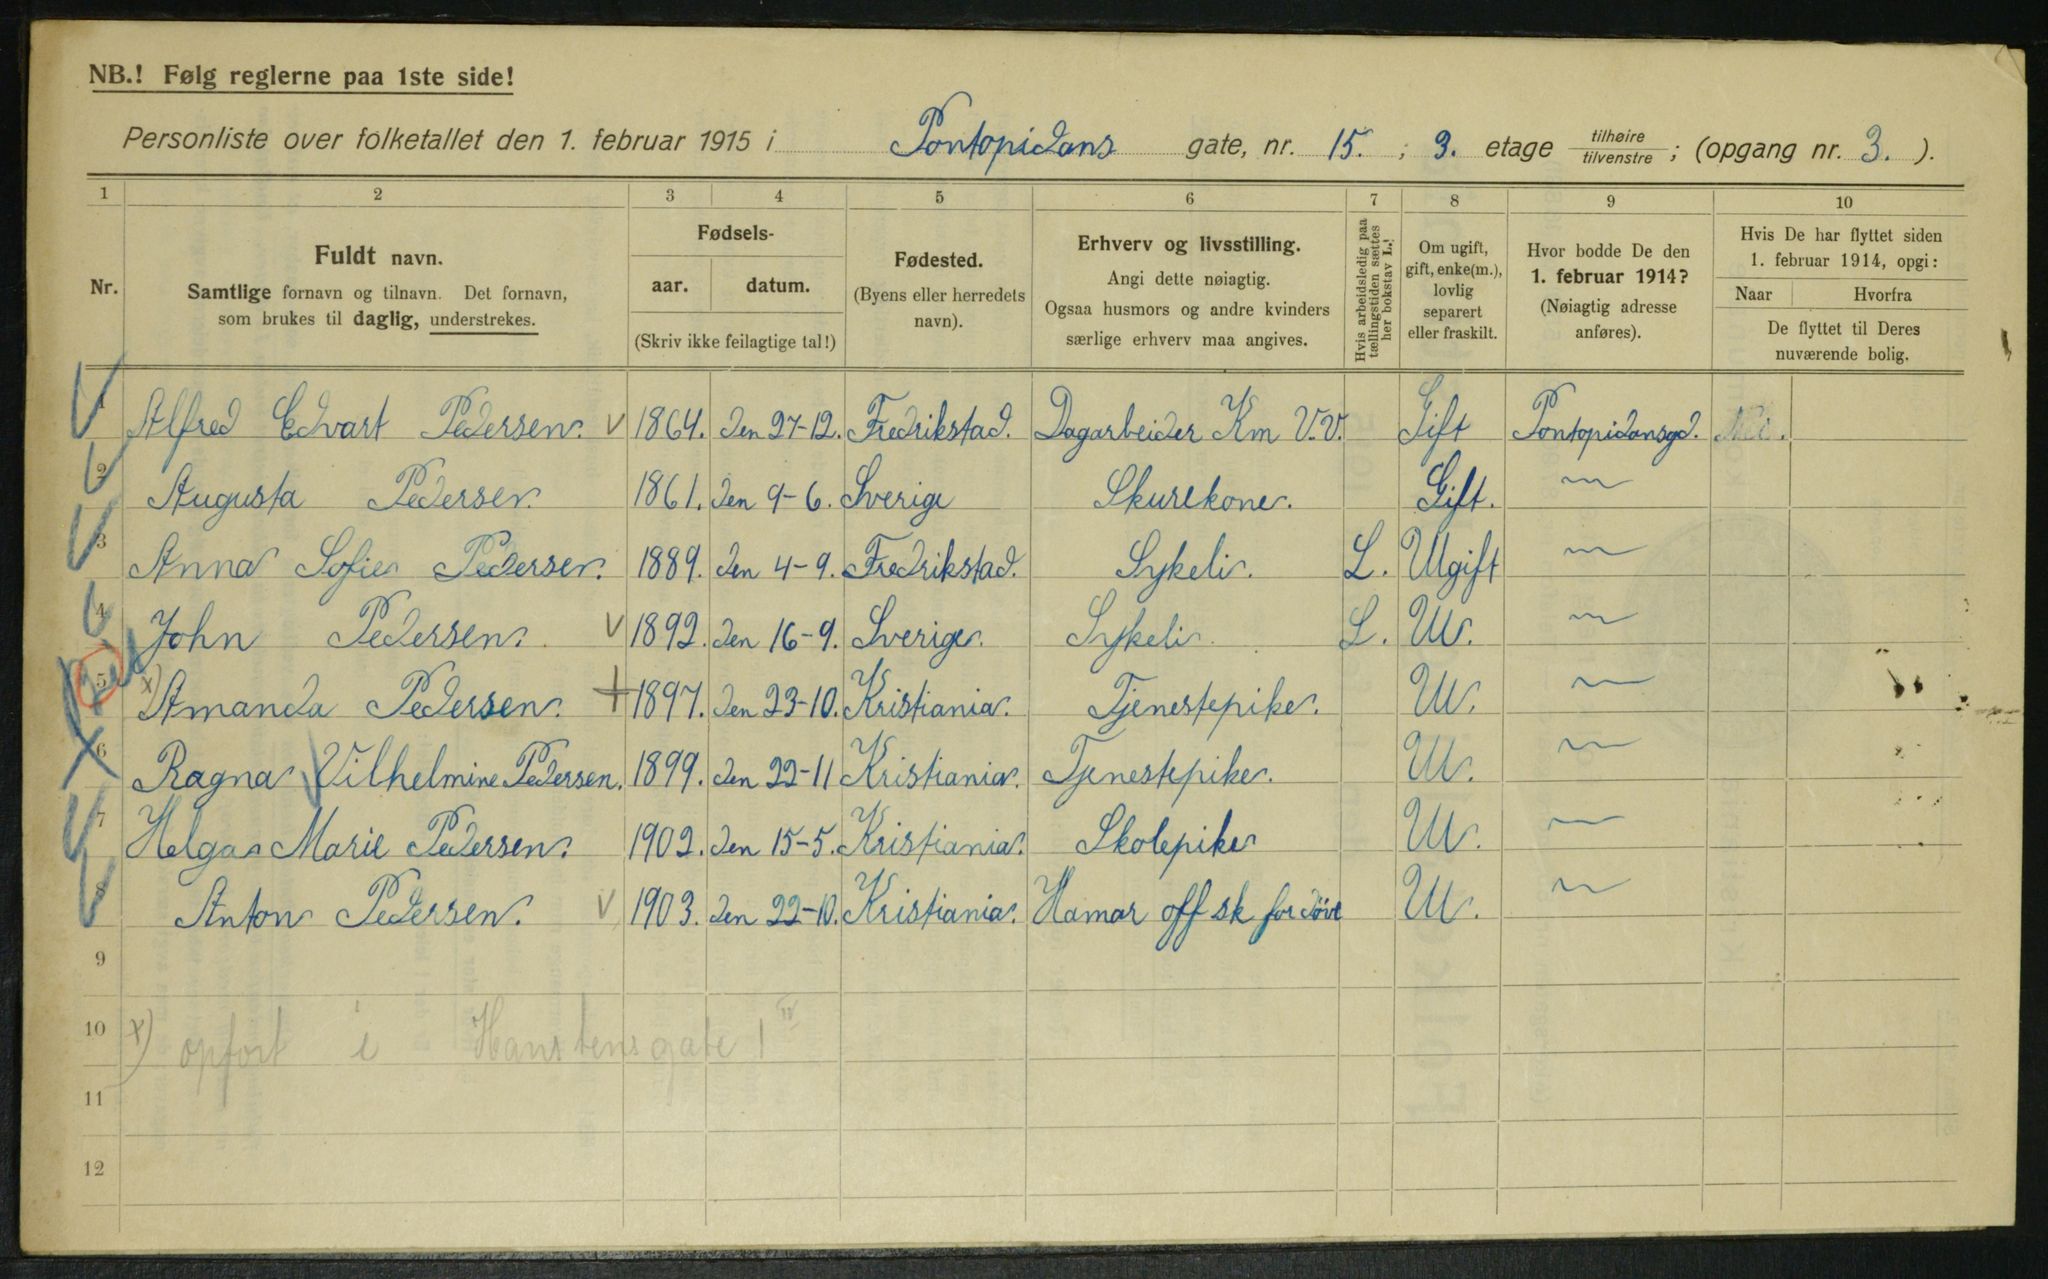 NB.! Følg reglerne paa 1ste side!
Personliste over folketallet den 1. februar 1915 i Pontopidans gate, nr. 15. ; 3. etage tilhøire / tilvenstre ; (opgang nr. 3. ).
1 2 3 4 5 6 7 8 9 10
Nr.
Fuldt navn.
Samtlige fornavn og tilnavn. Det fornavn,
som brukes til daglig, understrekes.
Fødsels-
aar. datum.
(Skriv ikke feilagtige tal!)
Fødested.
(Byens eller herredets
navn).
Erhverv og livsstilling.
Angi dette nøiagtig.
Ogsaa husmors og andre kvinders
særlige erhverv maa angives.
Hvis arbeidsledig paa
tællingstiden sættes
her bokstav L.!
Om ugift,
gift, enke(m.),
lovlig
separert
eller fraskilt.
Hvor bodde De den
1. februar 1914?
(Nøiagtig adresse
anføres).
Hvis De har flyttet siden
1. februar 1914, opgi:
Naar Hvorfra
De flyttet til Deres
nuværende bolig.
1 Alfred Edvart Pedersen. V 1864. den 27-12. Fredrikstad. Dagarbeider Km V.V. Gift Pontopidansgd. Nei.
2 Augusta Pedersen. 1861. den 9-6. Sverige Skurekone. Gift. 〃
3 Anna Sofie Pedersen. 1889. den 4-9. Fredrikstad. Sykeli. L. Ugift 〃
4 John Pedersen. V 1892. den 16-9. Sverige. Sykeli L. U. 〃
5 x) Amanda Pedersen. + 1897. den 23-10. Kristiania. Tjenestepike. U. 〃
6 Ragna Vilhelmine Pedersen. 1899. den 22-11 Kristiania. Tjenestepike. U. 〃
7 Helga Marie Pedersen. 1902. den 15-5. Kristiania. Skolepike U. 〃
8 Anton Pedersen. V 1903. den 22-10. Kristiania. Hamar off sk for døve U. 〃
9
10 x) opfort i Hanstensgate 1 IV
11
12